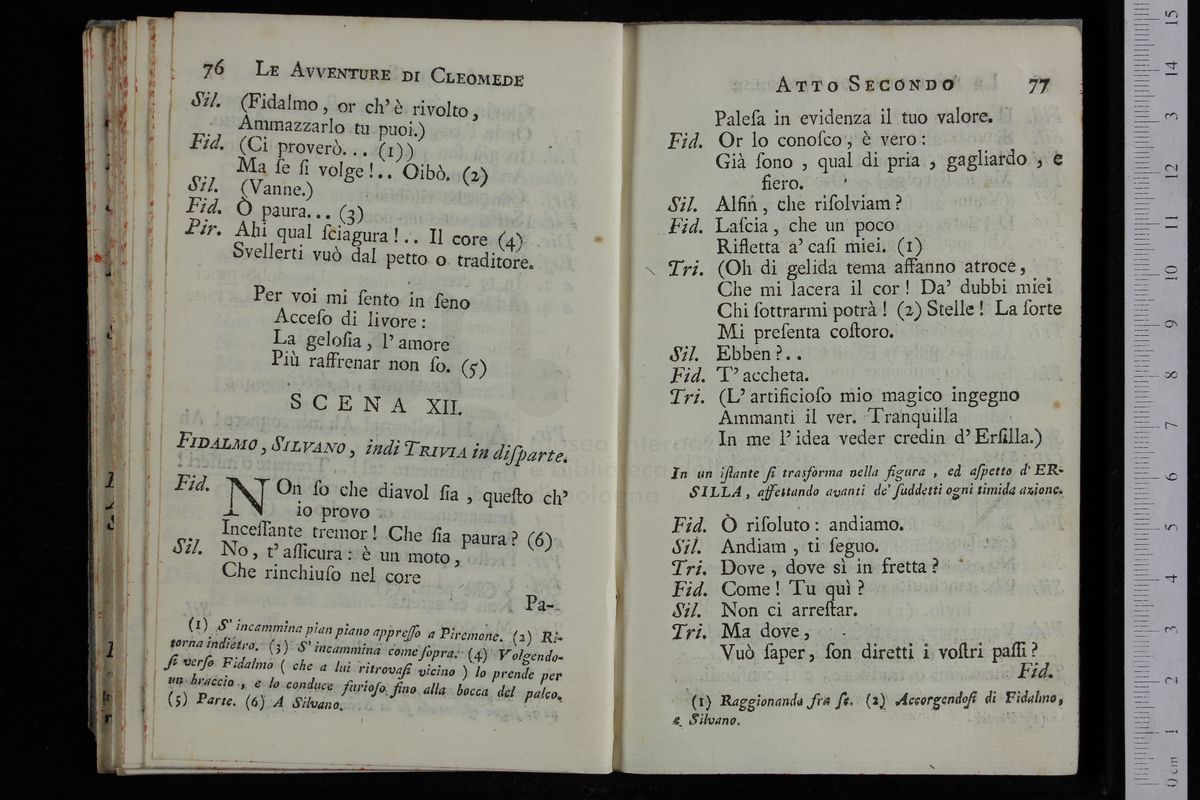 76 LE AVVENTURE DI CLEOMEDE
Sil. (Fidalmo, or ch' è rivolto,
Ammazzarlo tu puoi.)
Fid. (Ci proverò... (1))
Ma ſe ſi volge!.. Oibò. (2)
Sil. (Vanne.)
Fid. Ò paura... (3)
Pir. Ahi qual ſciagura!.. Il core (4)
Svellerti vuò dal petto o traditore.
Per voi mi ſento in ſeno
Acceſo di livore:
La geloſia, l' amore
Più raffrenar non ſo. (5)
SCENA XII.
FIDALMO, SILVANO, indi TRIVIA in diſparte.
Fid. NOn ſo che diavol ſia, queſto ch'
io provo
Inceſſante tremor! Che ſia paura? (6)
Sil. No, t' aſſicura: è un moto,
Che rinchiuſo nel core
Pa-
(1) S' incammina pian piano appreſſo a Piremone. (2) Ri-
torna indietro. (3) S' incammina come ſopra. (4) Volgendo-
ſi verſo Fidalmo ( che a lui ritrovaſi vicino ) lo prende per
un braccio, e lo conduce furioſo fino alla bocca del palco.
(5) Parte. (6) A Silvano.
ATTO SECONDO 77
Paleſa in evidenza il tuo valore.
Fid. Or lo conoſco, è vero:
Già ſono, qual di pria, gagliardo, e
fiero.
Sil. Alfin, che riſolviam?
Fid. Laſcia, che un poco
Rifletta a' caſi miei. (1)
Tri. (Oh di gelida tema affanno atroce,
Che mi lacera il cor! Da' dubbi miei
Chi ſottrarmi potrà! (2) Stelle! La ſorte
Mi preſenta coſtoro.
Sil. Ebben?..
Fid. T' accheta.
Tri. (L' artificioſo mio magico ingegno
Ammanti il ver. Tranquilla
In me l' idea veder credin d' Erſilla.)
In un iſtante ſi trasforma nella figura, ed aſpetto d' ER-
SILLA, affettando avanti de' ſuddetti ogni timida azione.
Fid. Ò riſoluto: andiamo.
Sil. Andiam, ti ſeguo.
Tri. Dove, dove sì in fretta?
Fid. Come! Tu quì?
Sil. Non ci arreſtar.
Tri. Ma dove,
Vuò ſaper, ſon diretti i voſtri paſſi?
Fid.
(1) Raggionanda fra ſe. (2) Accorgendoſi di Fidalmo,
e Silvano.